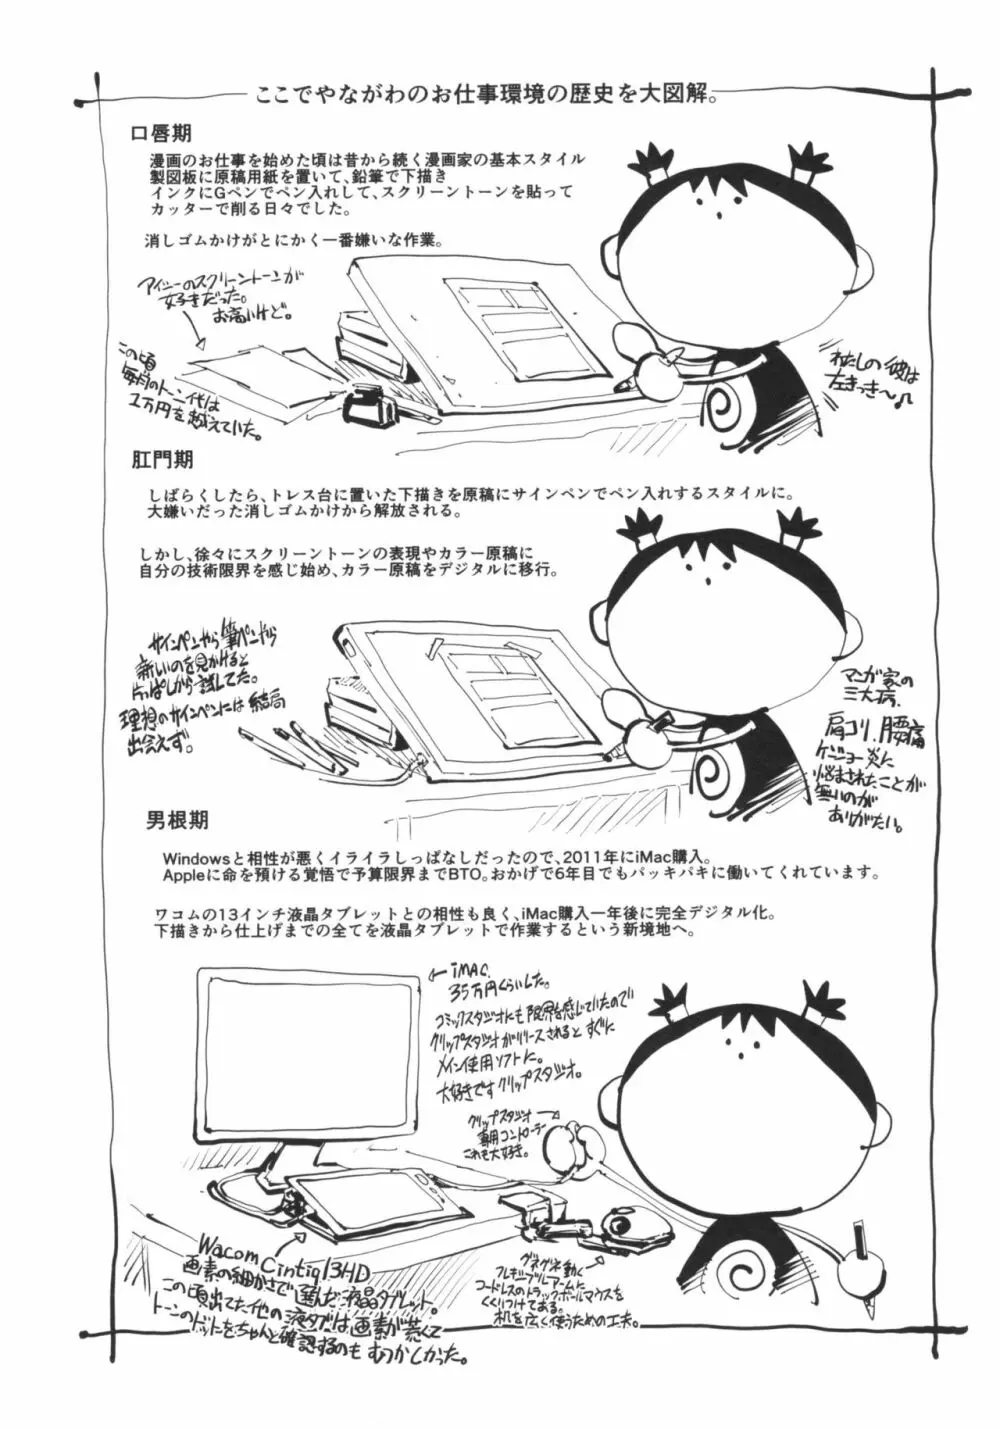 ここでやながわのお仕事環境の歴史を大図解。
口唇期
漫画のお仕事を始めた頃は昔から続く漫画家の基本スタイル
製図板に原稿用紙を置いて、鉛筆で下描き
インクにGペンでペン入れして、スクリーントーンを貼って
カッターで削る日々でした。
消しゴムかけがとにかく一番嫌いな作業。
アイシーのスクリーントーンが
好きだった。
お高いけど。
この頃
毎月のトーン代は
1万円を越えていた。
わたしの彼は
左きっき〜♪
肛門期
しばらくしたら、トレス台に置いた下描きを原稿にサインペンでペン入れするスタイルに。
大嫌いだった消しゴムかけから解放される。
しかし、徐々にスクリーントーンの表現やカラー原稿に
自分の技術限界を感じ始め、カラー原稿をデジタルに移行。
サインペンやら筆ペンやら
新しいのを見かけると
片っぱしから試してた。
理想のサインペンには結局
出会えず。
マンガ家の
三大病、
肩コリ、腰痛
ケンショー炎に
悩まされたことが
無いのが
ありがたい。
男根期
Windowsと相性が悪くイライラしっぱなしだったので、2011年にiMac購入。
Appleに命を預ける覚悟で予算限界までBTO。おかげで6年目でもバッキバキに働いてくれています。
ワコムの13インチ液晶タブレットとの相性も良く、iMac購入一年後に完全デジタル化。
下描きから仕上げまでの全てを液晶タブレットで作業するという新境地へ。
←iMAC.
35万円くらいした。
コミックスタジオにも限界を感じていたので
クリップスタジオがリリースされるとすぐに
メイン使用ソフトに。
大好きですクリップスタジオ。
クリップスタジオ→
専用コントローラー
これも大好き。
Wacom Cintiq 13HD
画素の細かさで選んだ液晶タブレット。
この頃出てた他の液タブは画素が荒くて
トーンのドットをちゃんと確認するのもむつかしかった。
グネグネ動く
フレキシブルアームに
コードレスのトラックボールマウスを
くくりつけてある。
机を広く使うための工夫。